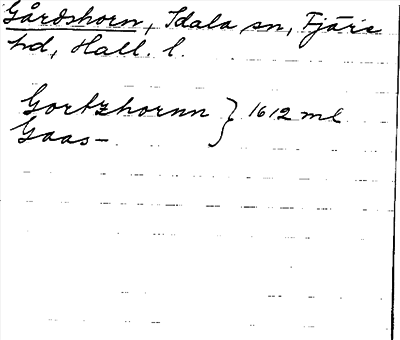 Gårdshorn, Idala sn, Fjäre
hd, Hall. l.
Gortzhornn } 1612 ml
Gaas–